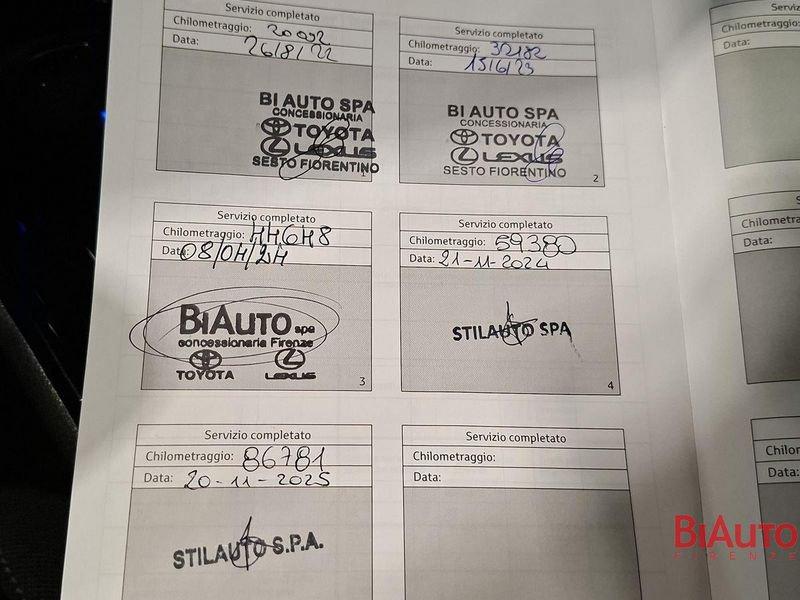 Servizio completato
Chilometraggio: 20092
Data: 26/8/22
BI AUTO SPA
CONCESSIONARIA
TOYOTA
LEXUS
SESTO FIORENTINO
Servizio completato
Chilometraggio: 32182
Data: 15/6/23
BI AUTO SPA
CONCESSIONARIA
TOYOTA
LEXUS
SESTO FIORENTINO
2
Servizio completato
Chilometraggio: 44648
Data: 08/04/24
BIAUTO spa
concessionaria Firenze
TOYOTA LEXUS
3
Servizio completato
Chilometraggio: 59380
Data: 21-11-2024
STILAUTO SPA
4
Servizio completato
Chilometraggio: 86781
Data: 20-11-2025
STILAUTO S.P.A.
Servizio completato
Chilometraggio:
Data:
Chilometraggio:
Data:
Data:
Data:
BIAUTO
FIRENZE